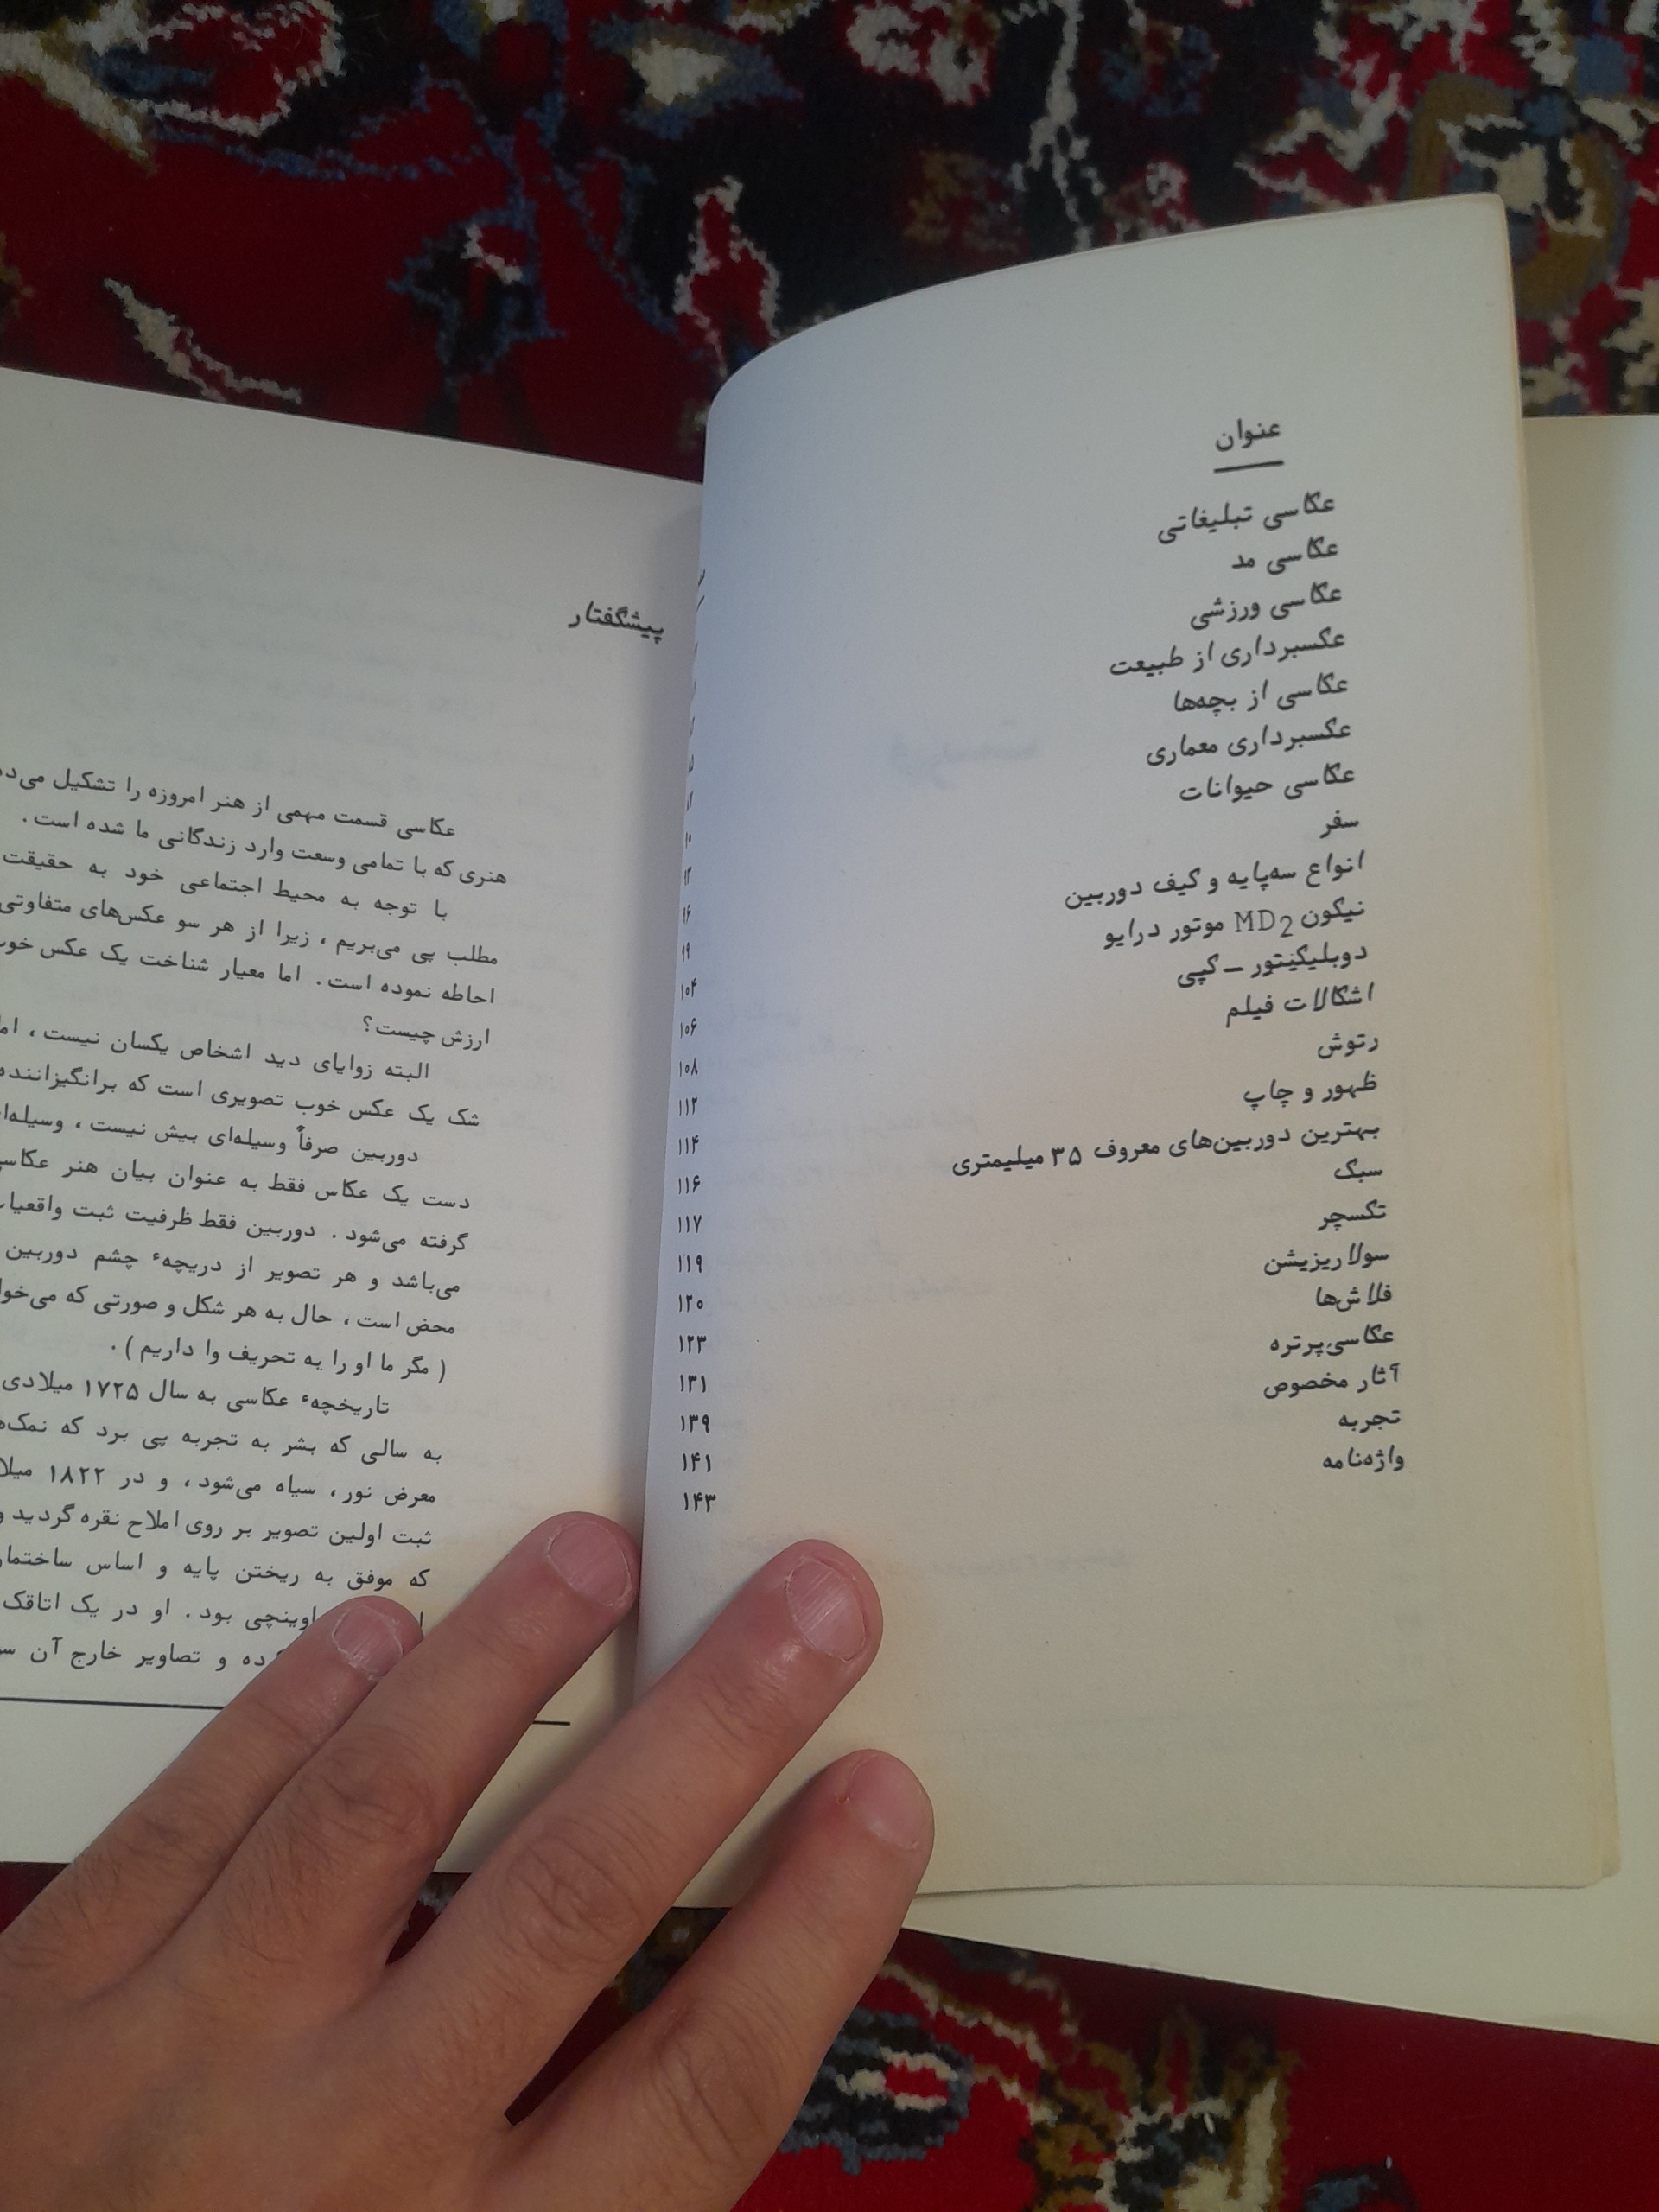 عنوان
عکاسی تبلیغاتی
عکاسی مد
عکاسی ورزشی
عکسبرداری از طبیعت
عکاسی از بچه‌ها
عکسبرداری معماری
عکاسی حیوانات
سفر
انواع سه‌پایه و کیف دوربین
نیکون MD2 موتور درایو
دوبلیکیتور - کپی
اشکالات فیلم
رتوش
ظهور و چاپ
بهترین دوربین‌های معروف ۳۵ میلیمتری
سبک
تکسچر
سولاریزیشن
فلاش‌ها
عکاسی پرتره
آثار مخصوص
تجربه
واژه‌نامه
۱۰۴
۱۰۶
۱۰۸
۱۱۲
۱۱۴
۱۱۶
۱۱۷
۱۱۹
۱۲۰
۱۲۳
۱۳۱
۱۳۹
۱۴۱
۱۴۳
پیشگفتار
عکاسی قسمت مهمی از هنر امروزه را تشکیل
هنری که با تمامی وسعت وارد زندگانی ما شده است.
با توجه به محیط اجتماعی خود به حقیقت
مطلب پی می‌بریم، زیرا از هر سو عکس‌های متفاوتی
احاطه نموده است. اما معیار شناخت یک عکس
ارزش چیست؟
البته زوایای دید اشخاص یکسان نیست،
شک یک عکس خوب تصویری است که برانگیزاننده
دوربین صرفاً وسیله‌ای بیش نیست،
دست یک عکاس فقط به عنوان بیان هنر
گرفته می‌شود. دوربین فقط ظرفیت ثبت
می‌باشد و هر تصویر از دریچهٔ چشم دوربین
محض است، حال به هر شکل و صورتی که
(مگر ما او را به تحریف وا داریم).
تاریخچهٔ عکاسی به سال ۱۷۲۵ میلادی
به سالی که بشر به تجربه پی برد که
معرض نور، سیاه می‌شود، و در ۱۸۲۲
ثبت اولین تصویر بر روی املاح نقره گردید
که موفق به ریختن پایه و اساس
بود. او در یک اتاقک
و تصاویر خارج آن